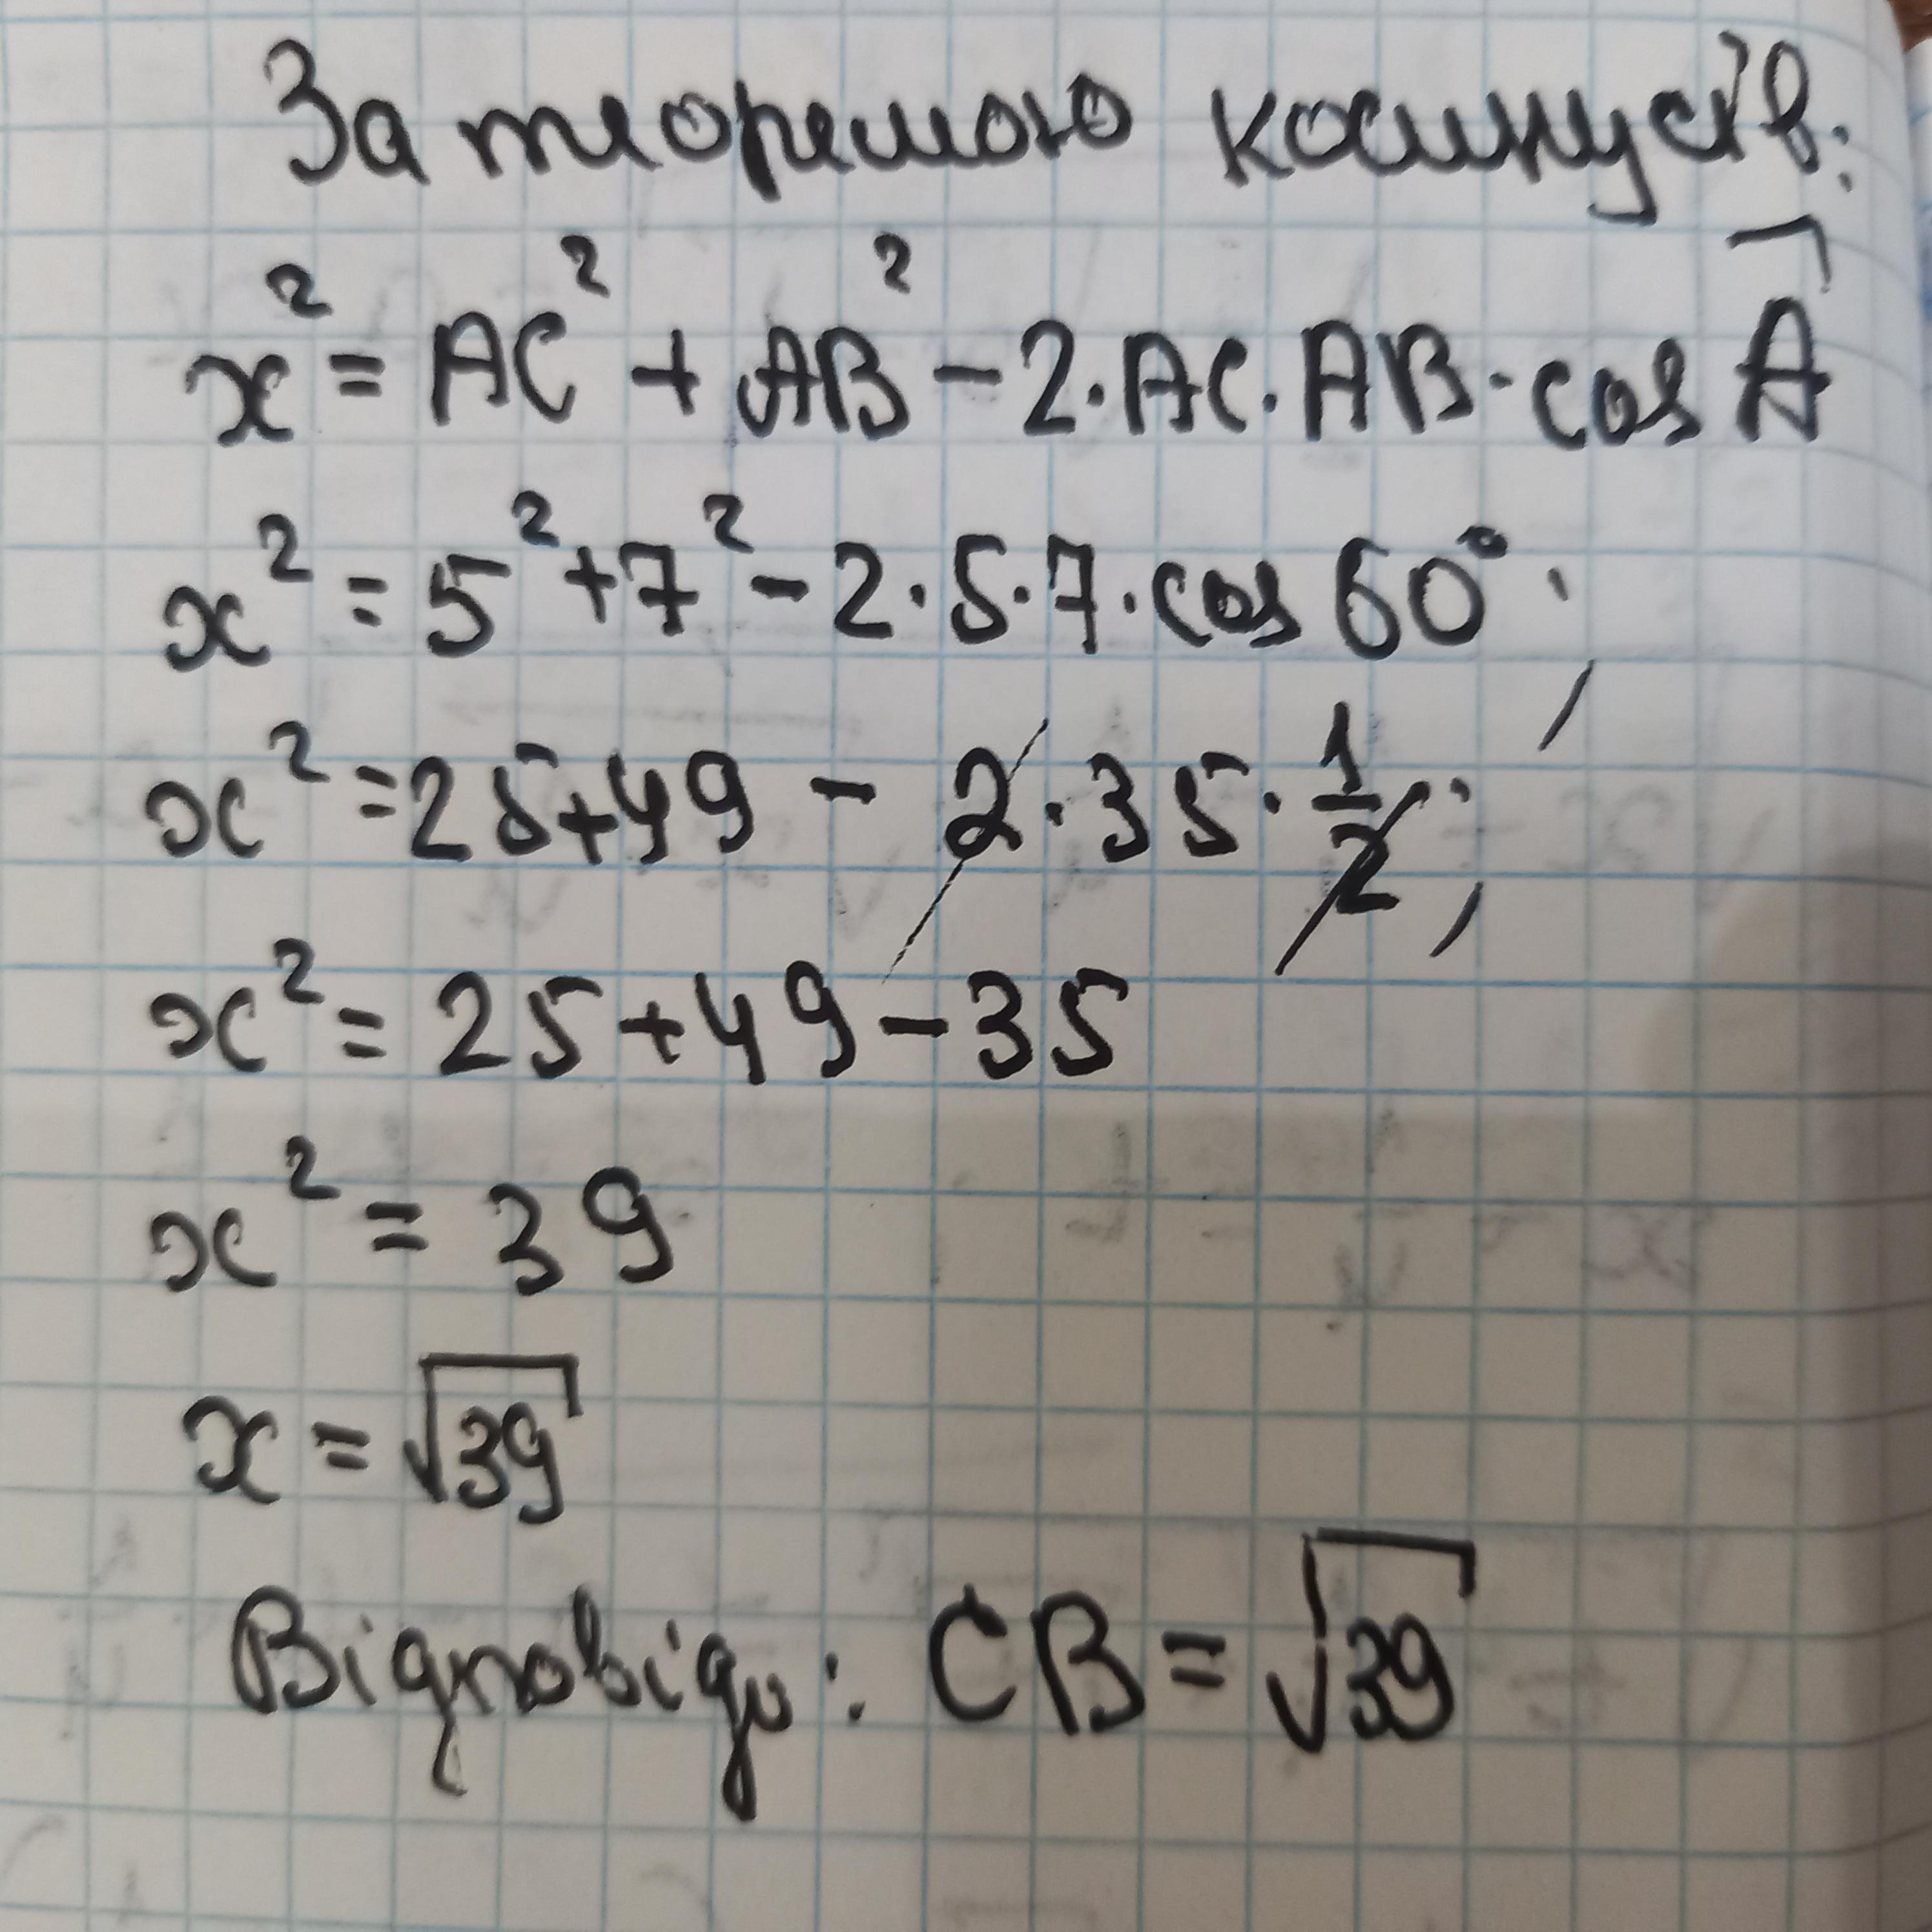 За теоремою косинусів:
x² = AC² + AB² - 2·AC·AB·cos Â
x² = 5² + 7² - 2·5·7·cos 60°;
x² = 25+49 - 2·35·1/2;
x² = 25+49-35
x² = 39
x = √39
Відповідь: CB = √39